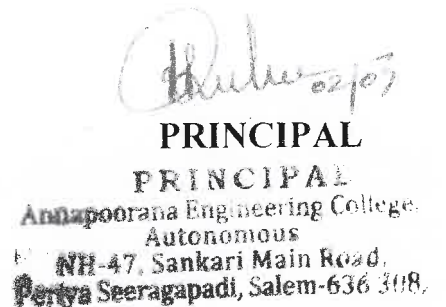 02/07
PRINCIPAL
PRINCIPAL
Annapoorana Engineering College,
Autonomous
NH-47, Sankari Main Road,
Periya Seeragapadi, Salem-636 308.